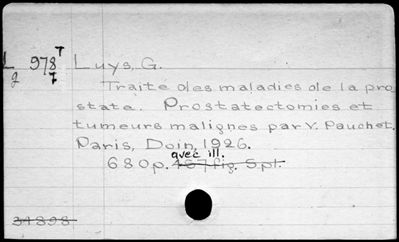 L 978 T Luys, G.
2 7
Traite des maladies de la pro
state. Prostatectomies et
tumeurs malignes par V. Pauchet.
Paris, Doin, 1926.
avec ill.
680p. 487 fig. 5 pl.
34898